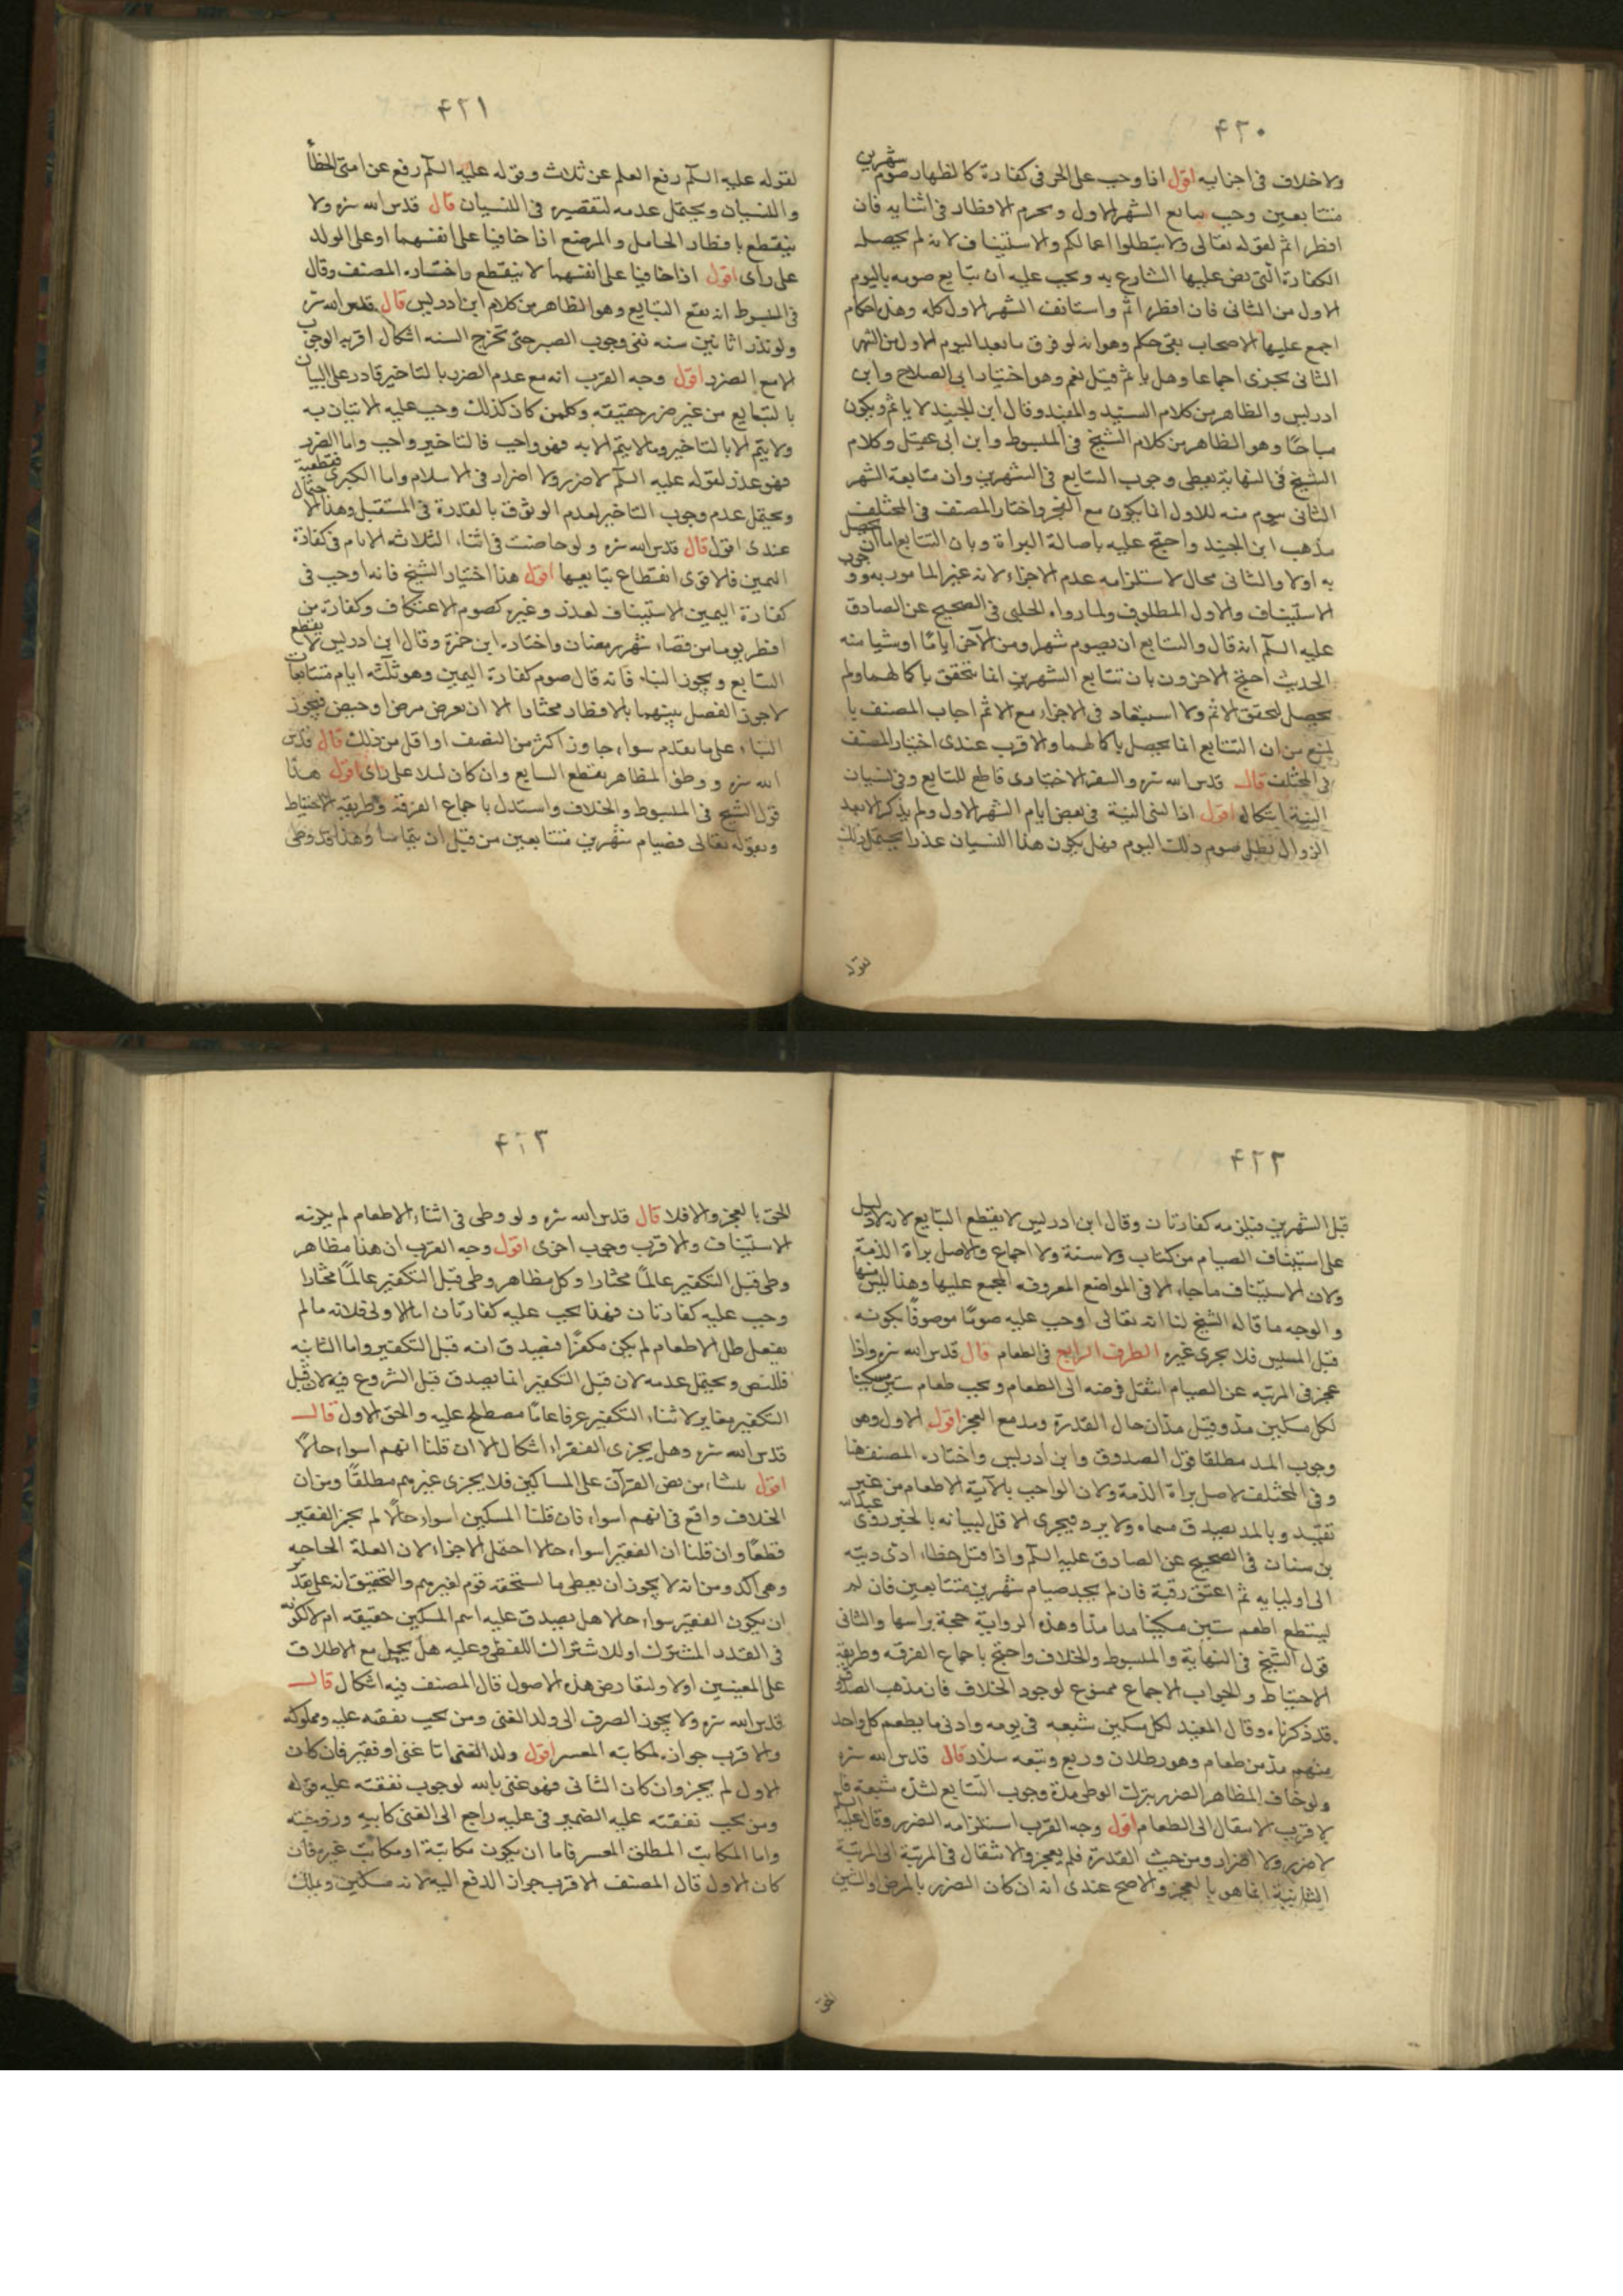 ۴۲۰
ولا خلاف في اجزائه اقول اذا وجب على الحر في كفارة كالظهار صوم شهرين
متتابعين وجب تتابع الشهر الاول ويحرم الافطار في اثنائه فان
افطر اثم لقوله تعالى ولا تبطلوا اعمالكم والاستيناف لانه لم يحصل
الكفارة التي نص عليها الشارع به ويجب عليه ان يتابع صومه باليوم
الاول من الثاني فان افطر اثم واستانف الشهر الاول كله وهذه احكام
اجمع عليها الاصحاب بقي حكم وهو انه لو فرق ما بعد اليوم الاول من الشهر
الثاني يجزى اجماعا وهل ياثم قيل نعم وهو اختيار ابي الصلاح وابن
ادريس والظاهر من كلام السيد والمفيد وقال ابن الجنيد لا ياثم ويكون
مباحًا وهو الظاهر من كلام الشيخ في المبسوط وابن ابي عقيل وكلام
الشيخ في النهاية يعطى وجوب التتابع في الشهرين وان متابعة الشهر
الثاني بيوم منه للاول انما يكون مع العجز واختار المصنف في المختلف
مذهب ابن الجنيد واحتج عليه باصالة البراة وبان التتابع اما ان يحصل
به اولا والثاني محال لاستلزامه عدم الاجزاء لانه غير المامور به ووجوب
الاستيناف والاول المطلوب ولما رواه الحلبي في الصحيح عن الصادق
عليه السلم انه قال والتتابع ان يصوم شهرا ومن الآخر ايامًا او شيا منه
الحديث احتج الاخرون بان تتابع الشهرين انما يتحقق باكمالهما ولم
يحصل لتحقق الاثم ولا استبعاد في الاجزاء مع الاثم اجاب المصنف با
لمنع من ان التتابع انما يحصل باكمالهما والاقرب عندي اختيار المصنف
في المختلف قال قدس الله سره والسفر الاختياري قاطع للتتابع وفي نسيان
النية اشكال اقول اذا نسي النية في بعض ايام الشهر الاول ولم يذكر الا بعد
الزوال بطل صوم ذلك اليوم فهل يكون هذا النسيان عذرا يحتمل ذلك
لقوله
۴۲۱
لقوله عليه السلم رفع القلم عن ثلاث وقوله عليه السلم رفع عن امتي الخطأ
والنسيان ويحتمل عدمه لتقصيره في النسيان قال قدس الله سره ولا
ينقطع بافطار الحامل والمرضع اذا خافيا على انفسهما او على الولد
على راى اقول اذا خافيا على انفسهما لا ينقطع واختاره المصنف وقال
في المبسوط انه يقع التتابع وهو الظاهر من كلام ابن ادريس قال قدس الله سره
ولو نذر اثانين سنه ففي وجوب الصبر حتى تخرج السنه اشكال اقربه الوجوب
الا مع الضرر اقول وجه القرب انه مع عدم الضرر بالتاخير قادر على الاتيان
بالتتابع من غير ضرر حقيقة وكل من كان كذلك وجب عليه الاتيان به
ولا يتم الا بالتاخير وما لا يتم الا به فهو واجب فالتاخير واجب واما الضرر
فهو عذر لقوله عليه السلم لا ضرر ولا اضرار في الاسلام واما الكبرى فقطعية
ويحتمل عدم وجوب التاخير لعدم الوثوق بالقدرة في المستقبل وهذا الاحتمال
عندى اقوى قال قدس الله سره ولو حاضت في اثناء الثلاثه الايام في كفارة
اليمين فالاقوى انقطاع تتابعها اقول هذا اختيار الشيخ فانه اوجب في
كفارة اليمين الاستيناف لعذر وغيره كصوم الاعتكاف وكفارة من
افطر يوما من قضاء شهر رمضان واختاره ابن حمزة وقال ابن ادريس لا يقطع
التتابع ويجوز البناء فانه قال صوم كفارة اليمين وهو ثلثه ايام متتابعات
لا يجوز الفصل بينهما بالافطار مختارا الا ان يعرض مرض او حيض فيجوز
البناء على ما تقدم سواء جاوز اكثر من النصف او اقل من ذلك قال قدس
الله سره ووطئ المظاهر يقطع التتابع وان كان ليلا على راى اقول هذا
قول الشيخ في المبسوط والخلاف واستدل باجماع الفرقة وطريقة الاحتياط
وبقوله تعالى فصيام شهرين متتابعين من قبل ان يتماسا وهذا قد وطى
۴۲۲
قبل الشهرين فيلزمه كفارتان وقال ابن ادريس لا يقطع التتابع لانه لا دليل
على استيناف الصيام من كتاب ولا سنة ولا اجماع والاصل براة الذمة
ولان الاستيناف ما جاء الا في المواضع المعروفه المجمع عليها وهذا ليس منها
والوجه ما قاله الشيخ لنا انه تعالى اوجب عليه صومًا موصوفًا بكونه
قبل المسيس فلا يجرى غيره الطرف الرابع في الطعام قال قدس الله سره واذا
عجز في المرتبه عن الصيام انتقل فرضه الى الطعام ويجب طعام ستين مسكينا
لكل مسكين مد وقيل مدان حال القدرة ومد مع العجز اقول الاول وهو
وجوب المد مطلقا قول الصدوق وابن ادريس واختاره المصنف هنا
وفي المختلف لاصل براة الذمة ولان الواجب بالآية الاطعام من غير
تقييد وبالمد يصدق مسماه ولا يرد فيجرى الاقل لبيانه بالخبر روى عبدالله
بن سنان في الصحيح عن الصادق عليه السلم واذا قتل خطاء ادى ديته
الى اوليايه ثم اعتق رقبة فان لم يجد صيام شهرين متتابعين فان لم
يستطع اطعم ستين مسكينا مدا مدا وهذه الرواية حجة براسها والثاني
قول الشيخ في النهاية والمبسوط والخلاف واحتج باجماع الفرقه وطريقة
الاحتياط والجواب الاجماع ممنوع لوجود الخلاف فان مذهب الصدوق
قد ذكرناه وقال المفيد لكل مسكين شبعه في يومه وادنى ما يطعم كل واحد
منهم مد من طعام وهو رطلان وربع وتبعه سلار قال قدس الله سره
ولو خاف المظاهر الضرر بترك الوطى مدة وجوب التتابع لشدة شبقه فا
لاقرب الانتقال الى الطعام اقول وجه القرب استلزامه الضرر وقال عليه السلم
لا ضرر ولا اضرار ومن حيث القدرة فلم يعجز والانتقال في المرتبة الى المرتبة
الثانية انما هو بالعجز والاصح عندى انه ان كان الضرر بالمرض والشين
الحق
۴۲۳
الحق بالعجز والا فلا قال قدس الله سره ولو وطى في اثناء الاطعام لم يلزمه
الاستيناف والاقرب وجوب اخرى اقول وجه القرب ان هذا مظاهر
وطى قبل التكفير عالمًا مختارا وكل مظاهر وطى قبل التكفير عالمًا مختارا
وجب عليه كفارتان فهذا يجب عليه كفارتان اما الاولى فلانه ما لم
يفعل كل الاطعام لم يكن مكفرًا فيصدق انه قبل التكفير واما الثانيه
فللنص ويحتمل عدمه لان قبل التكفير انما يصدق قبل الشروع فيه لان قبل
التكفير مغاير لاثناء التكفير عرفا عامًا مصطلح عليه والحق الاول قال
قدس الله سره وهل يجزى الفقراء اشكال الا ان قلنا انهم اسواء حالًا
اقول ينشاء من نص القرآن على المساكين فلا يجزى غيرهم مطلقًا ومن ان
الخلاف واقع في انهم اسواء فان قلنا المسكين اسواء حالًا لم يجز الفقير
قطعًا وان قلنا ان الفقير اسواء حالا احتمل الاجزاء لان العلة الحاجه
وهي آكد ومن انه لا يجوز ان يعطى ما يستحقه قوم لغيرهم والتحقيق انه على تقدير
ان يكون الفقير سواء حالا هل يصدق عليه اسم المسكين حقيقه ام لا لكونه
في القدر المشترك او للاشتراك اللفظي وعليه هل يحمل مع الاطلاق
على المعينين اولا ولتعارض هذه الاصول قال المصنف فيه اشكال قال
قدس الله سره ولا يجوز الصرف الى ولد الغنى ومن يجب نفقته عليه ومملوكه
والاقرب جوازه لمكاتبه المعسر اقول ولد الغنى اما غنى او فقير فان كان
الاول لم يجز وان كان الثاني فهو غنى بابيه لوجوب نفقته عليه قوله
ومن يجب نفقته عليه الضمير في عليه راجع الى الغنى كابيه وزوجته
واما المكاتب المطلق المعسر فاما ان يكون مكاتبة او مكاتب غيره فان
كان الاول قال المصنف الاقرب جواز الدفع اليه لانه مسكين ويملك